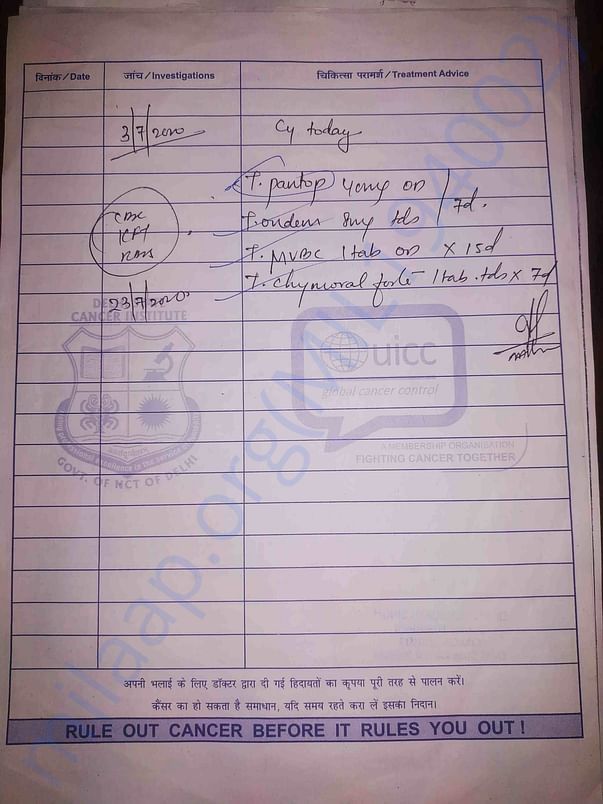 दिनांक / Date जांच / Investigations चिकित्सा परामर्श / Treatment Advice
3/7/2020 Cy today
T. pantop 40mg OD
T. ondem 8mg tds 7d.
CBC
KFT
T. MVBC 1tab OD x 15d
T. chymoral forte 1tab. tds x 7d
23/7/2020
CANCER INSTITUTE
GOVT. OF NCT OF DELHI
uicc
global cancer control
A MEMBERSHIP ORGANISATION
FIGHTING CANCER TOGETHER
milaap.org
अपनी भलाई के लिए डॉक्टर द्वारा दी गई हिदायतों का कृपया पूरी तरह से पालन करें।
कैंसर का हो सकता है समाधान, यदि समय रहते करा लें इसका निदान।
RULE OUT CANCER BEFORE IT RULES YOU OUT !